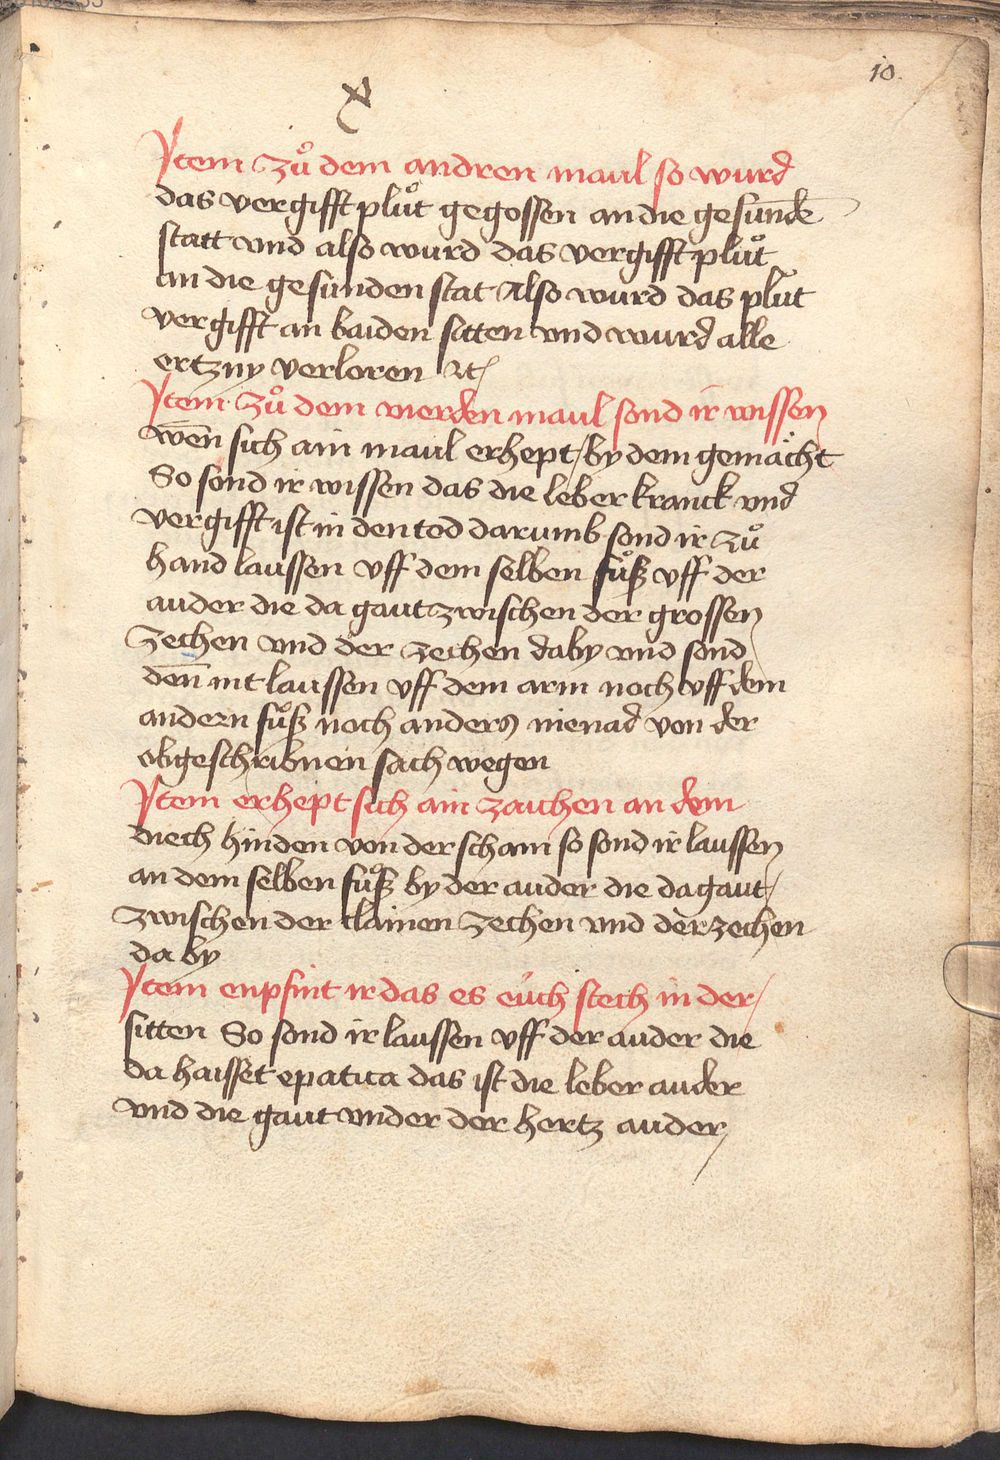 10.
x
Jtem zuͦ dem andren maul so wurd
das vergifft pluͦt gegossen an die gesundē
statt vnd also wurd das vergifft pluͦt
an die gesunden stat Also wurd das pluͦt
vergifft an baiden sitten vnd wurd alle
ertzny verloren ⁊c
Jtem zuͦ dem vierden maul sond ir wissen
wen̄ sich ain maul erhept / by dem gemaͤcht
So sond ir wissen das die leber kranck vnd
vergifft ist in den tod darumb sond ir zuͦ
hand laussen vff dem selben fuͦß vff der
auder die da gaut zwischen der grossen
zechen vnd der zechen daby vnd sond
den̄ nit laussen vff dem arm noch vff dem
andern fuͦß noch anders nienad von der
obgeschribnen sach wegen
Jtem erhept sich ain zaichen an dem
diech hinden von der scham so sond ir laussen
an dem selben fuͦß by der auder die da gaut /
zwischen der clainen zechen vnd der zechen
da by
Jtem enpfint ir das es eu̍ch stech in der /
sitten So sond ir laussen vff der auder die
da haisset epatica das ist die leber auder
vnd die gaut vnder der hertz auder